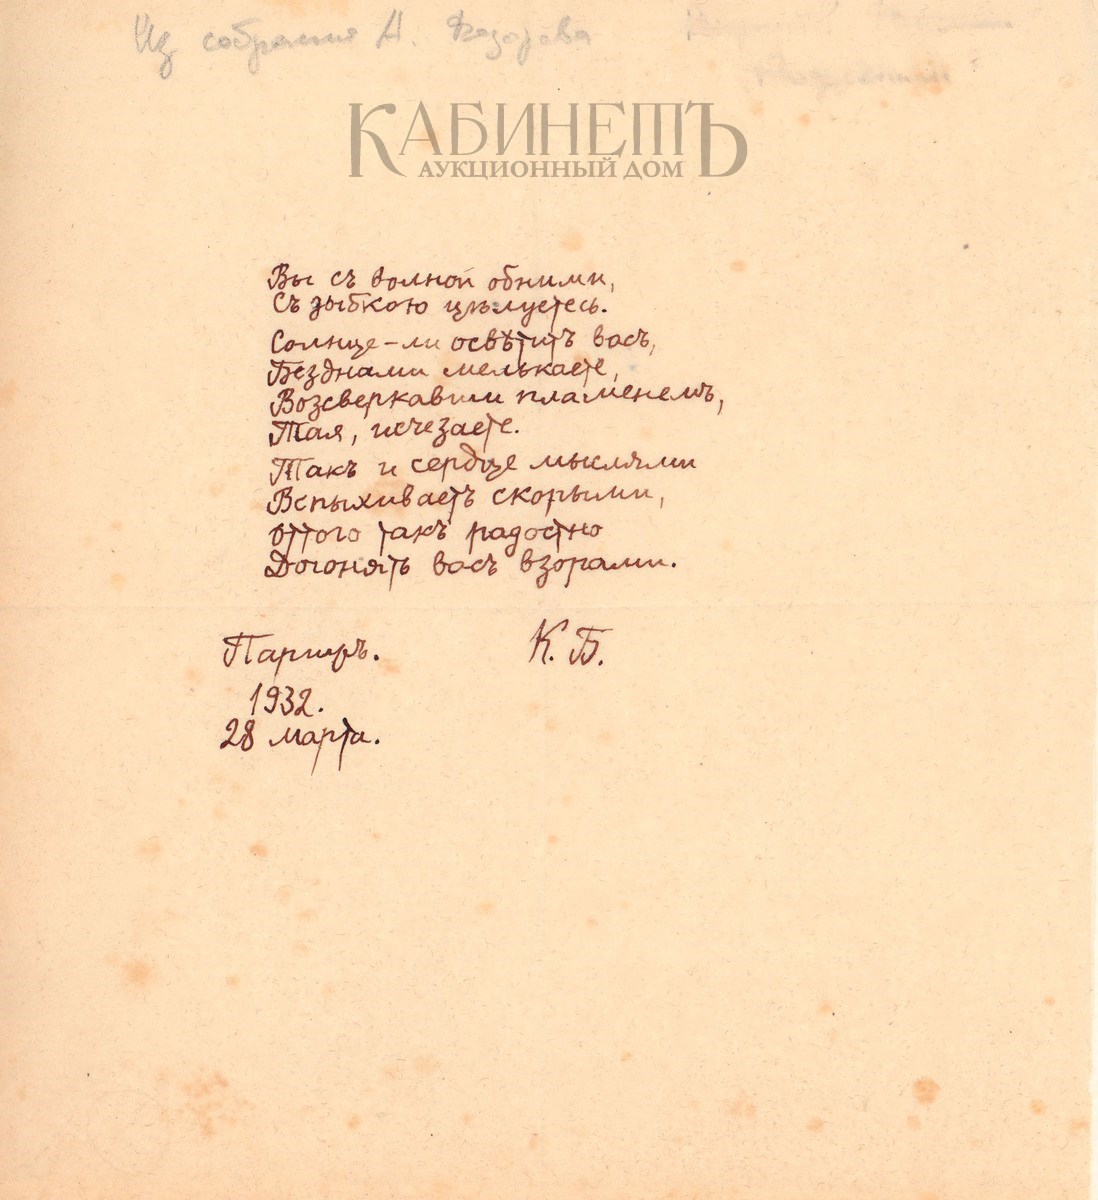 Из собрания А. Федорова
КАБИНЕТЪ
АУКЦИОННЫЙ ДОМ
Вы съ волной обними,
Съ зыбкою цѣлуетесь.
Солнце-ли освѣтитъ васъ,
Безднами мелькаете,
Возсверкавши пламенемъ,
Тая, исчезаете.
Такъ и сердце мыслями
Вспыхиваетъ скорыми,
Оттого такъ радостно
Догонять васъ взорами.
Парижъ. К. Б.
1932.
28 марта.